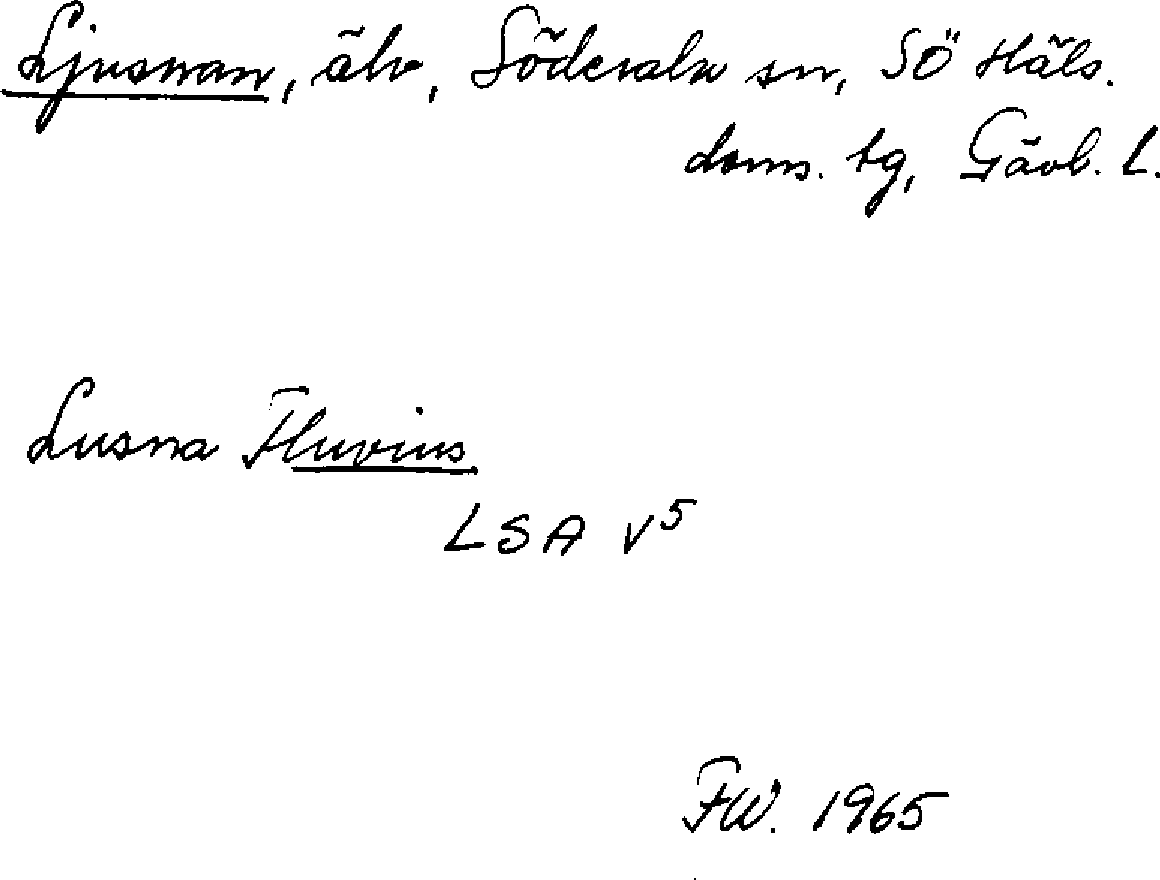 Ljusnan, älv, Söderala sn, SÖ Häls.
doms. tg, Gävl. L.
Lusna Fluvius
LSA V⁵
FW. 1965